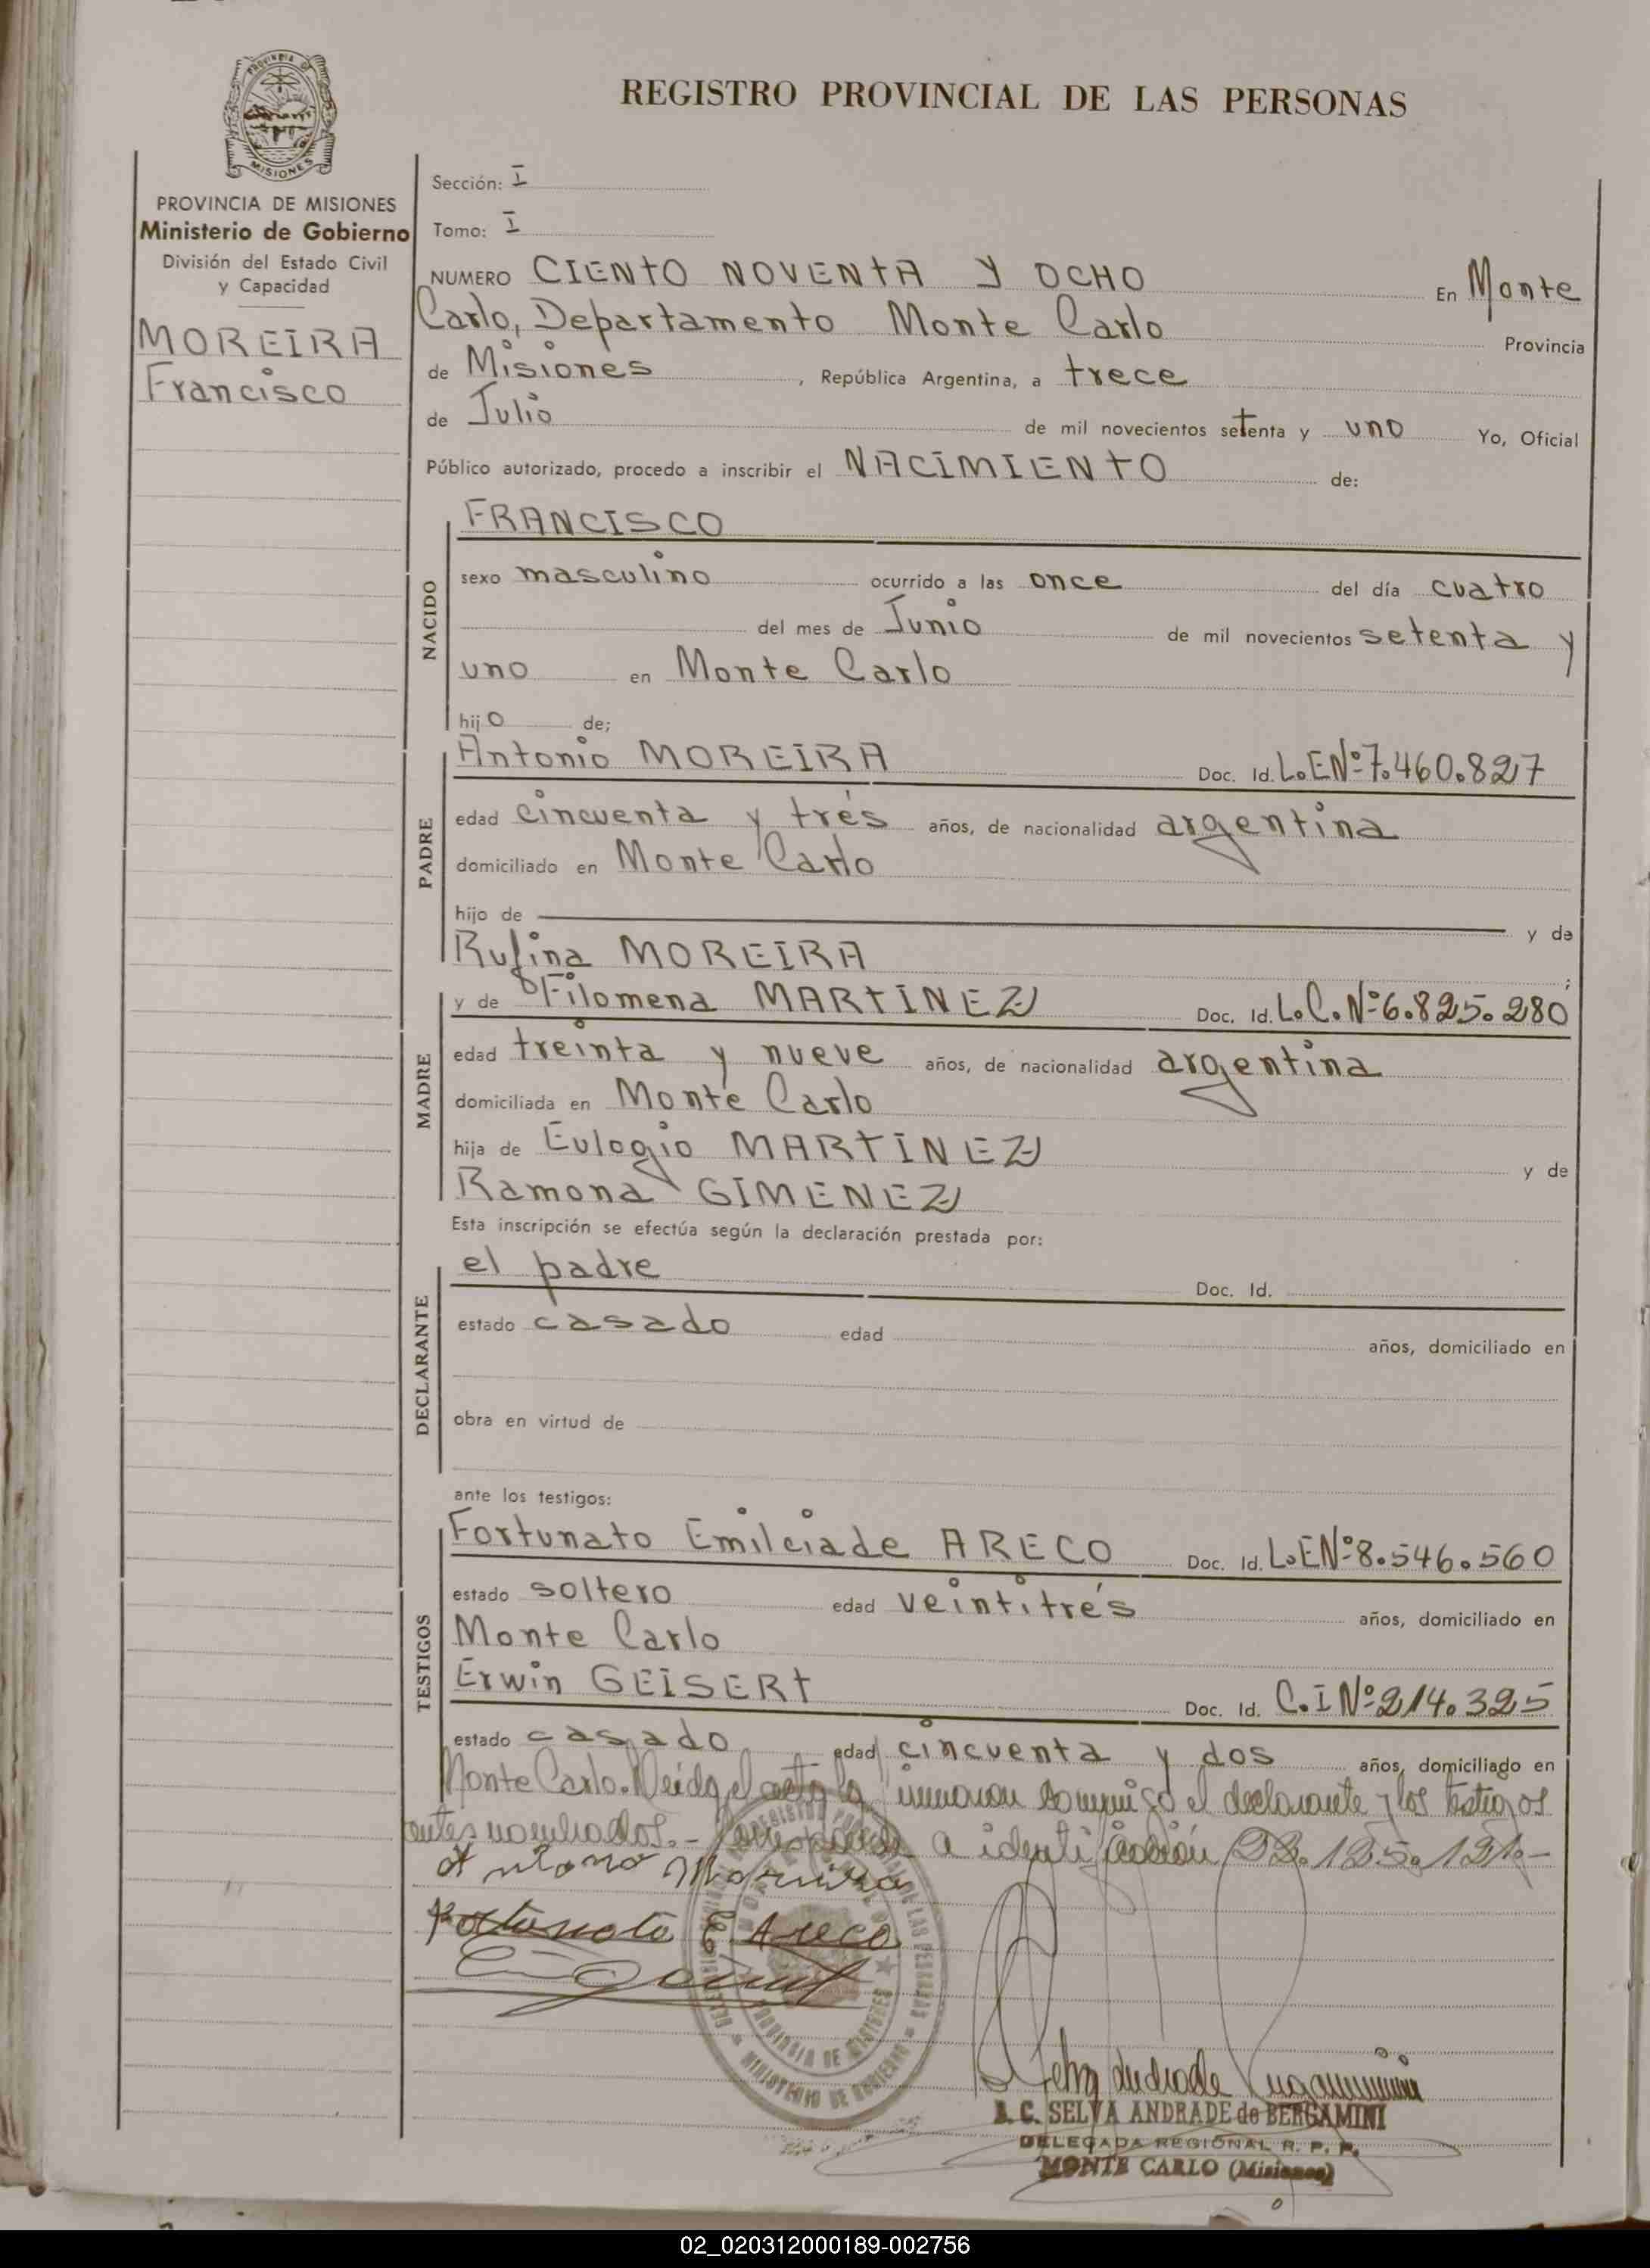 REGISTRO PROVINCIAL DE LAS PERSONAS
MISIONES
PROVINCIA DE MISIONES
Ministerio de Gobierno
División del Estado Civil
y Capacidad
MOREIRA
Francisco
Sección: I
Tomo: I
NUMERO CIENTO NOVENTA Y OCHO En Monte
Carlo, Departamento Monte Carlo Provincia
de Misiones, República Argentina, a trece
de Julio de mil novecientos setenta y uno Yo, Oficial
Público autorizado, procedo a inscribir el NACIMIENTO de:
NACIDO
FRANCISCO
sexo masculino ocurrido a las once del día cuatro
del mes de Junio de mil novecientos setenta y
uno en Monte Carlo
hijo de;
PADRE
Antonio MOREIRA Doc. Id. L.E Nº 7.460.827
edad cincuenta y trés años, de nacionalidad argentina
domiciliado en Monte Carlo
hijo de y de
Rufina MOREIRA ;
MADRE
y de Filomena MARTINEZ Doc. Id. L.C. Nº 6.825.280
edad treinta y nueve años, de nacionalidad argentina
domiciliada en Monte Carlo
hija de Eulogio MARTINEZ y de
Ramona GIMENEZ
Esta inscripción se efectúa según la declaración prestada por:
DECLARANTE
el padre Doc. Id.
estado casado edad años, domiciliado en
obra en virtud de
ante los testigos:
TESTIGOS
Fortunato Emilciade ARECO Doc. Id. L.E Nº 8.546.560
estado soltero edad veintitrés años, domiciliado en
Monte Carlo
Erwin GEISERT Doc. Id. C.I Nº 214.325
estado casado edad cincuenta y dos años, domiciliado en
Monte Carlo. Leida el acta la firmaron conmigo el declarante y los testigos
antes nombrados.- Corresponde a identificación 22.125.121.-
Antonio Moreira
Fortunato E. Areco
Selva Andrade
A. C. SELVA ANDRADE de BERGAMINI
DELEGADA REGIONAL R. P. P.
MONTE CARLO (Misiones)
PROVINCIA DE MISIONES
MINISTERIO DE GOBIERNO
02_020312000189-002756